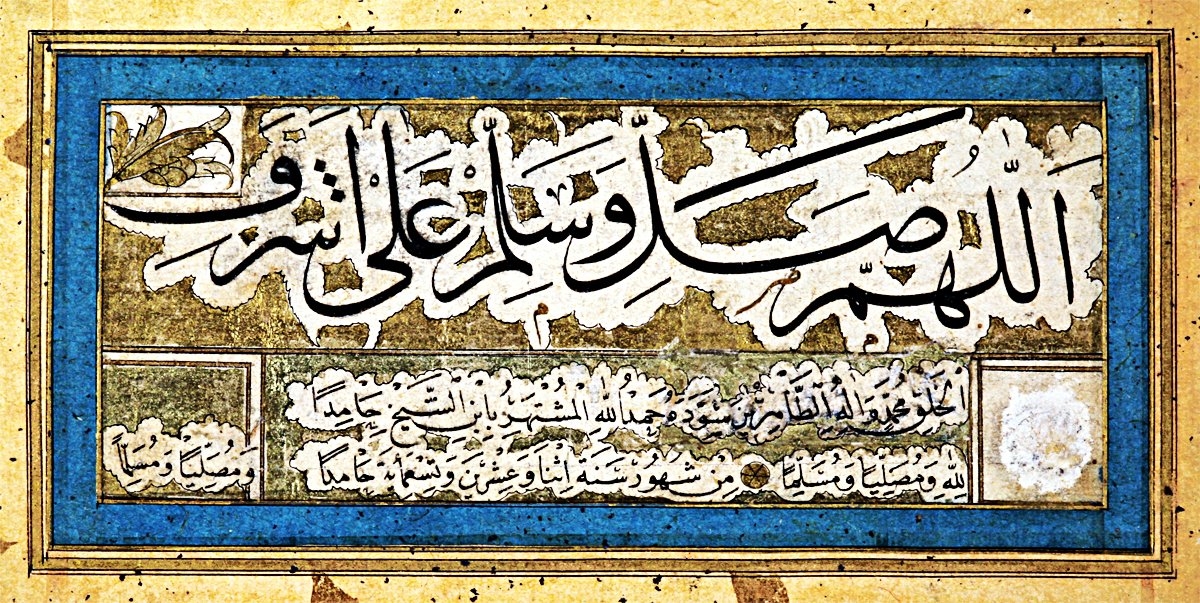 اَللّٰهُمَّ صَلِّ وَسَلِّمْ عَلٰى اَشْرَفِ
الْخَلْقِ مُحَمَّدٍ وَاٰلِهِ الطَّاهِرِينَ سَوَّدَهُ حَمْدُ اللهِ الْمُشْتَهَرُ بِابْنِ الشَّيْخِ حَامِدًا
لِلّٰهِ وَمُصَلِّيًا وَمُسَلِّمًا مِنْ شُهُورِ سَنَةِ اثْنَا وَعِشْرِينَ وَتِسْعَمِائَة حَامِدًا وَمُصَلِّيًا وَمُسَلِّمًا